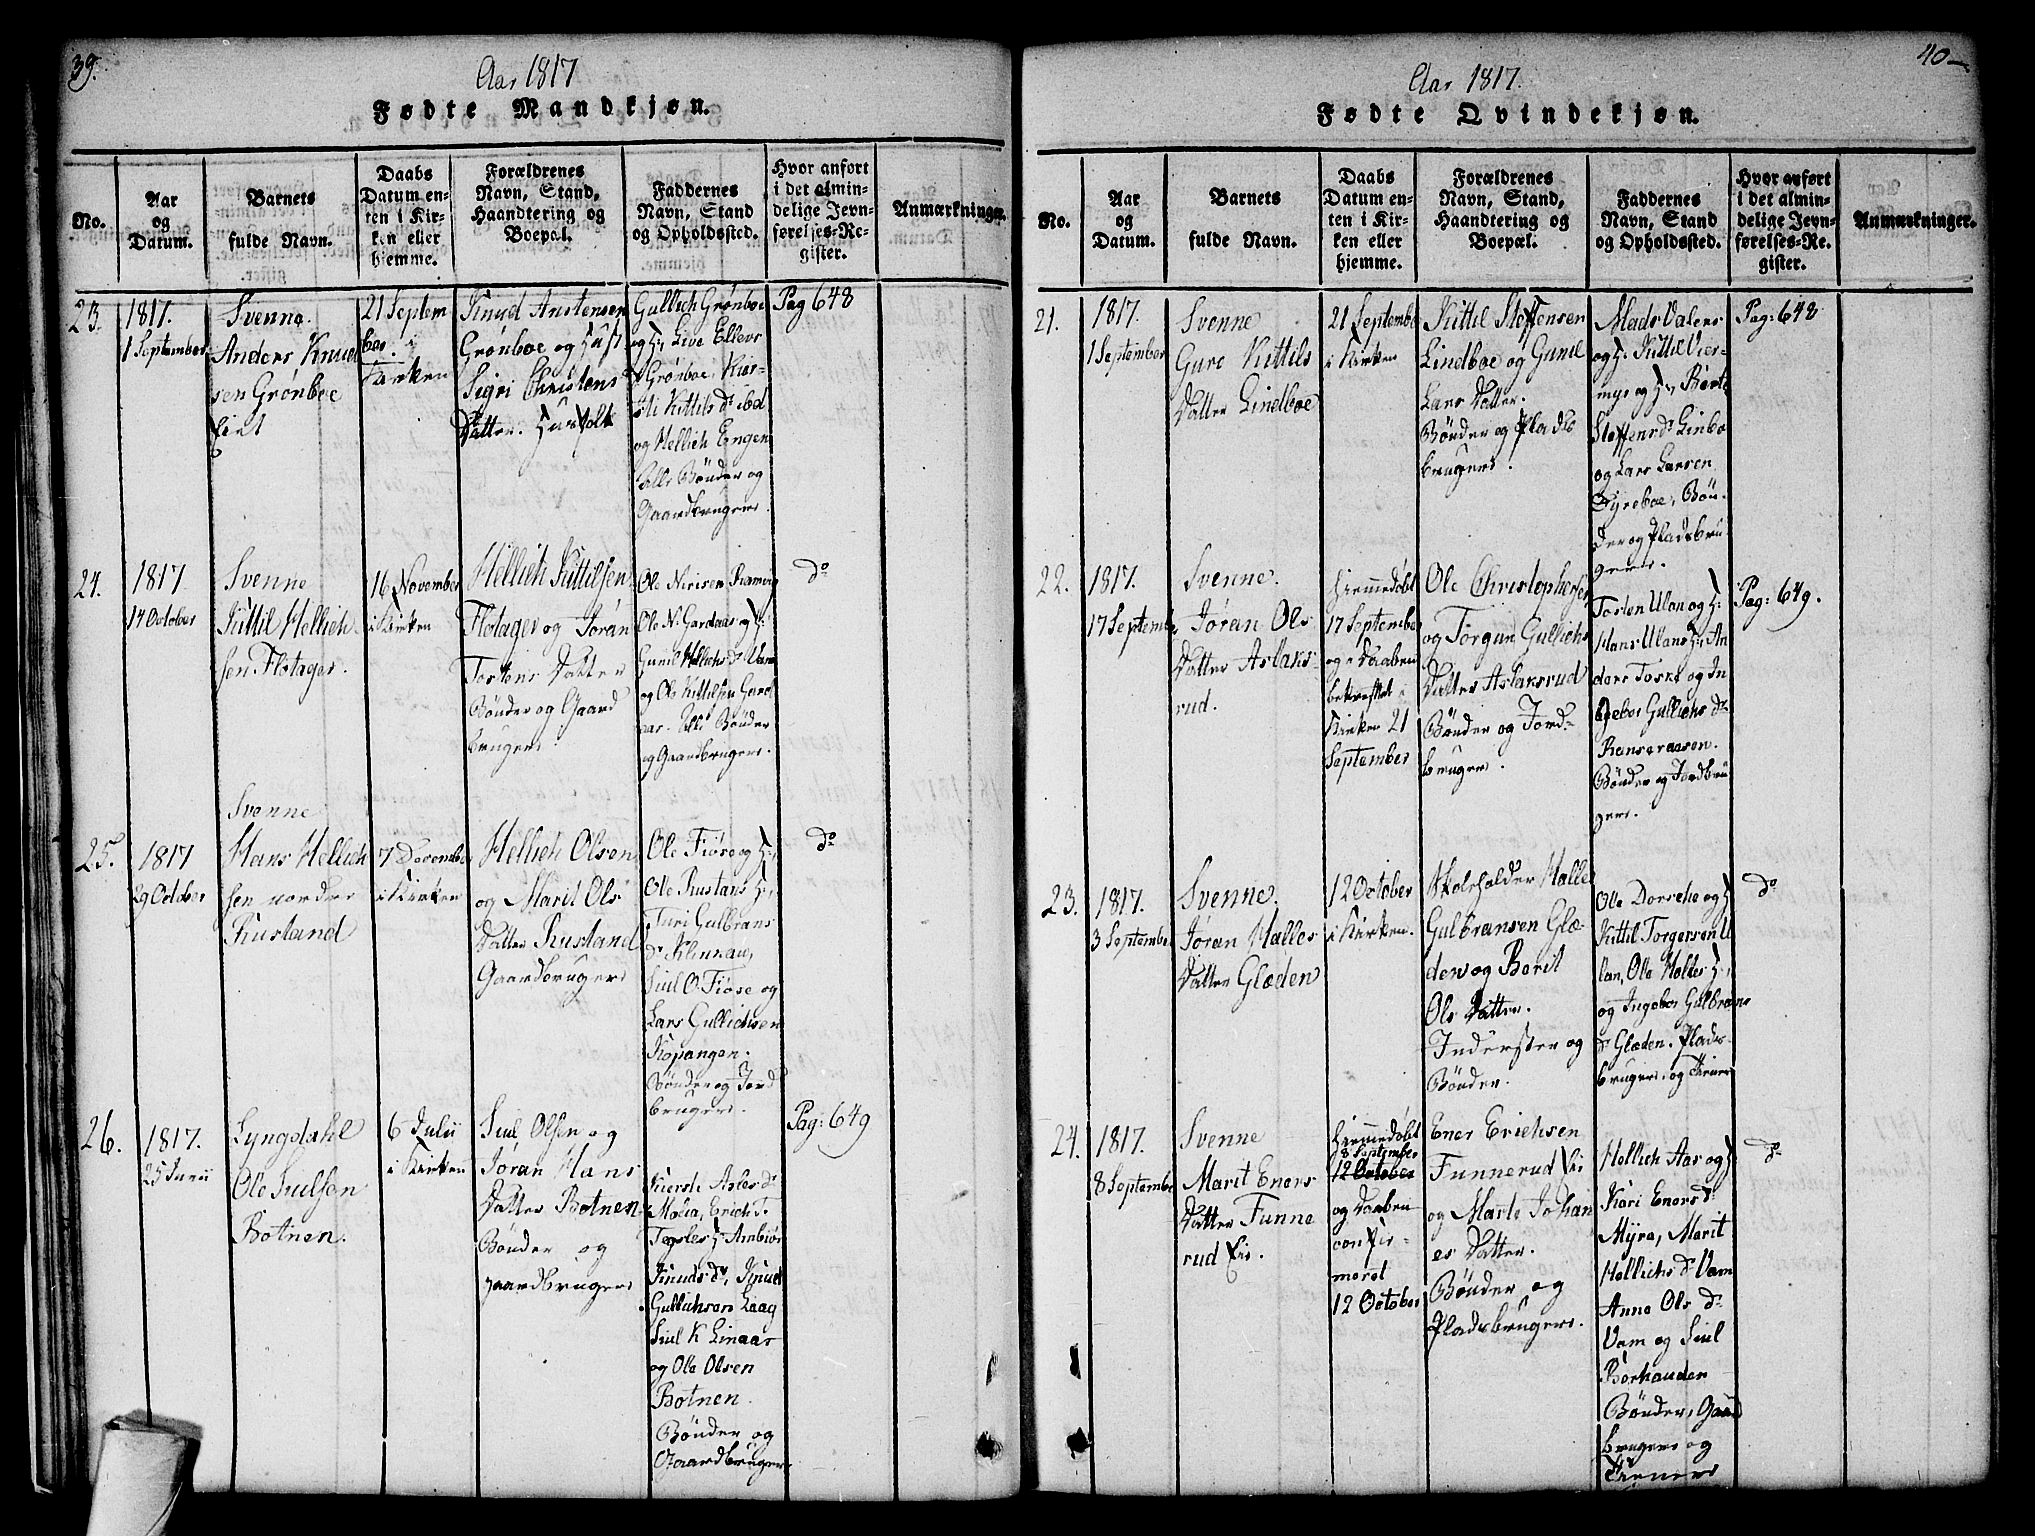 39.
Aar 1817
Fødte Mandkjøn.
No.
Aar
og
Datum.
Barnets
fulde Navn.
Daabs
Datum en-
ten i Kir-
ken eller
hjemme.
Forældrenes
Navn, Stand,
Haandtering og
Boepæl.
Faddernes
Navn, Stand
og Opholdssted.
Hvor anført
i det almin-
delige Jevn-
førelses-Re-
gister.
Anmærkninger.
23.
1817.
1 September
Svenne.
Anders Knud
sen Grønboe
Eiet
21 Septem
ber. i
Kirken
Knud Anstensen
Grønboe og Hust
Sigri Christens
Datter. Husfolk
Gullich Grønboe
og H: Live Ellevs
d Grønboe, Kier-
sti Kittils dr ibd
og Hellich Engen
alle Bønder og
Gaardbrugere.
Pag 648
24.
1817
14 October
Svenne
Kittil Hellich-
sen Flotager.
16 November
i Kirken
Hellich Kittilsen
Flotager og Jøran
Tostens Datter
Bønder og Gaard
brugere
Ole Nirisen Ramvig
Ole N. Gardaas og H:
Gunil Hellichs dr Vam
og Ole Kittilsen Gard
aas. Alle Bønder
og Gaardbrugere.
do
25.
1817
29 October
Svenne
Hans Hellich
sen nordre
Rustand
7 December
i Kirken
Hellich Olsen
og Marit Ols
Datter Rustand
Gaardbrugere
Ole Fiøse og H:,
Ole Rustans H:,
Turi Gulbrans
dr Klinnau,
Siul O. Fiøse og
Lars Gullichsen
Kopangen.
Bønder og Jord
brugere.
do
26.
1817.
25 Junii
Lyngdahl
Ole Siulsen
Botnen.
6 Julii
i Kirken
Siul Olsen og
Jøran Hans
Datter Botnen
Bønder og
gaardbrugere
Kiersti Asles dr
Molia, Erich T.
Tesles H: Ambiør
Knuds dr, Knud
Gullichsen Laag
Siul K Linaas
og Ole Olsen
Botnen.
Bønder og
Gaardbrugere
Pag: 649
40
Aar 1817.
Fødte Qvindekjøn.
No.
Aar
og
Datum.
Barnets
fulde Navn.
Daabs
Datum en-
ten i Kir-
ken eller
hjemme.
Forældrenes
Navn, Stand,
Haandtering og
Boepæl.
Faddernes
Navn, Stand
og Opholdssted.
Hvor anført
i det almin-
delige Jevn-
førelses-Re-
gister.
Anmærkninger.
21.
1817.
1 September
Svenne
Guro Kittils
Datter Lindboe
21 Septembe
i Kirken
Kittil Steffensen
Lindboe og Gunil
Lars Datter.
Bønder og Plads
brugere.
Mads Valers
og H: Kittil Vier-
mys og H:, Berte
Steffens dr Linbo
og Lars Larsen
Fyreboe, Bøn-
der og Pladsbru
gere.
Pag: 648
22.
1817.
17 Septembe
Svenne.
Jøran Ols
Datter Aslaks-
rud.
Hiemmedøbt
17 September
og Daaben
bekreftet i
Kirken 21
September
Ole Christophersen
og Torgun Gullichs
Datter Aslaksrud
Bønder og Jord-
bruger.
Tosten Ulan og H:
Hans Ulans H: An
ders Toske og In
gebor Gullichs dr
Ranseraasen.
Bønder og Jordbru
gere.
Pag: 649.
23.
1817.
3 Septembe
Svenne.
Jøran Halles
Datter Glæden
12 October
i Kirken.
Skoleholder Halle
Gulbransen Glæ-
den og Berit
Ols Datter.
Inderster og
Bønder.
Ole Dorrehe og H
Kittil Torgersen U
lan, Ole Moldes H:,
og Ingebor Gulbrans
dr Glæden. Plads-
brugere og Tiener
do
24.
1817.
8 Septembe
Svenne
Marit Eners
Datter Funne
rud Eie.
Hiemmedøbt
8 September
12 October
og Daaben
confir-
meret
12 October
Ener Erichsen
Funnerud Eie
og Marte Johan
es Datter.
Bønder og
Pladsbrugere.
Hellich Aas og H:
Kari Eners dr
Myra, Marit
Hellichs dr Vam
Anne Ols dr
Vam og Siul
Borhauden
Bønder, Gaard
brugere og
Tienere
do